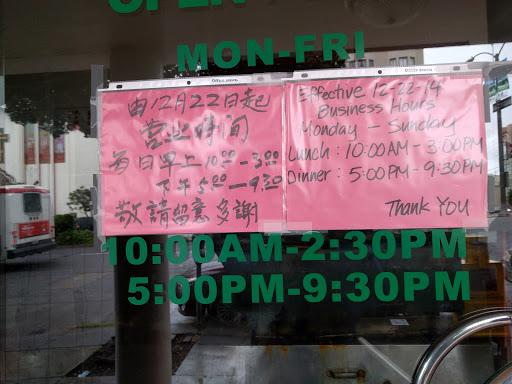 OPEN
MON-FRI
由12月22日起
营业時间
每日早上10:00-3:00
下午5:00-9:30
敬請留意 多謝
Effective 12-22-14
Business Hours
Monday - Sunday
Lunch : 10:00AM - 3:00PM
Dinner : 5:00PM - 9:30PM
Thank You
10:00AM-2:30PM
5:00PM-9:30PM